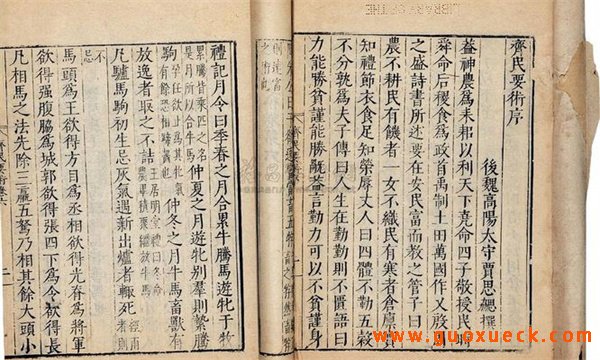 齊民要術序
後魏高陽太守賈思勰撰
蓋神農爲耒耜以利天下堯命四子敬授民時
舜命后稷食爲政首禹制土田萬國作乂殷周
之盛詩書所述要在安民富而教之管子曰一
農不耕民有饑者一女不織民有寒者倉廩實
知禮節衣食足知榮辱丈人曰四體不勤五穀
不分孰爲夫子傳曰人生在勤勤則不匱語曰
力能勝貧謹能勝禍蓋言勤力可以不貧謹身
禮記月令曰季春之月合累牛騰馬遊牝于牧
累騰皆乘匹之名
仲夏之月遊牝別羣則縶騰
駒
孕任欲止爲其牝氣
有餘恐相蹄齧也
仲冬之月牛馬畜獸有
放逸者取之不詰
凡驢馬駒初生忌灰氣遇新出爐者輒死
經雨
者則
不忌
馬頭爲王欲得方目爲丞相欲得光脊爲將軍
欲得強腹脇爲城郭欲得張四下爲令欲得長
凡相馬之法先除三羸五駑乃相其餘大頭小
www.guoxueck.com